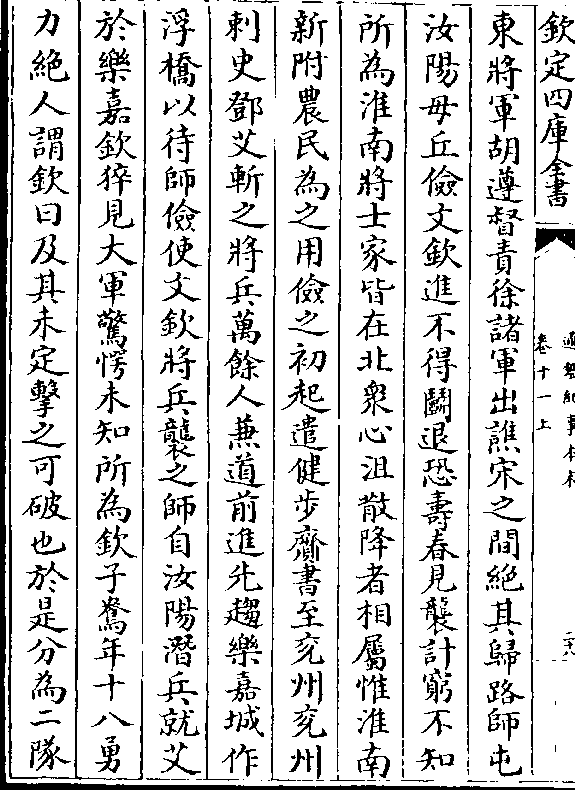 欽定四庫全書
通鑑紀事本末
卷十一上
二十八
東將軍胡遵督責徐諸軍出譙宋之間絕其歸路師屯
汝陽毋丘儉文欽進不得鬭退恐壽春見襲計窮不知
所為淮南將士家皆在北衆心沮散降者相屬惟淮南
新附農民為之用儉之初起遣健步齎書至兖州兖州
刺史鄧艾斬之將兵萬餘人兼道前進先趨樂嘉城作
浮橋以待師儉使文欽將兵襲之師自汝陽潛兵就艾
於樂嘉欽猝見大軍驚愕未知所為欽子鴦年十八勇
力絕人謂欽曰及其未定擊之可破也於是分為二隊